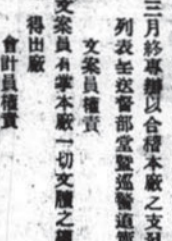 三月終專辦以合稽本廠之支
列表呈送督部堂暨巡警道
文案員權責
文案員有掌本廠一切文牘之
得出廠
會計員權責